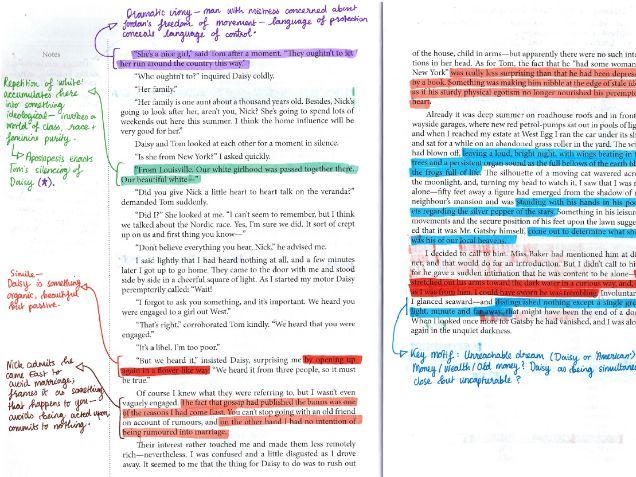 Dramatic irony – man with mistress concerned about
Jordan's freedom of movement – language of protection
conceals language of control.
Notes
"She's a nice girl," said Tom after a moment. "They oughtn't to let
her run around the country this way."
"Who oughtn't to?" inquired Daisy coldly.
"Her family."
"Her family is one aunt about a thousand years old. Besides, Nick's
going to look after her, aren't you, Nick? She's going to spend lots of
weekends out here this summer. I think the home influence will be
very good for her."
Daisy and Tom looked at each other for a moment in silence.
"Is she from New York?" I asked quickly.
"From Louisville. Our white girlhood was passed together there.
Our beautiful white—"
"Did you give Nick a little heart to heart talk on the veranda?"
demanded Tom suddenly.
"Did I?" She looked at me. "I can't seem to remember, but I think
we talked about the Nordic race. Yes, I'm sure we did. It sort of crept
up on us and first thing you know—"
"Don't believe everything you hear, Nick," he advised me.
I said lightly that I had heard nothing at all, and a few minutes
later I got up to go home. They came to the door with me and stood
side by side in a cheerful square of light. As I started my motor Daisy
peremptorily called: "Wait!
"I forgot to ask you something, and it's important. We heard you
were engaged to a girl out West."
"That's right," corroborated Tom kindly. "We heard that you were
engaged."
"It's a libel. I'm too poor."
"But we heard it," insisted Daisy, surprising me by opening up
again in a flower-like way. "We heard it from three people, so it must
be true."
Of course I knew what they were referring to, but I wasn't even
vaguely engaged. The fact that gossip had published the banns was one
of the reasons I had come East. You can't stop going with an old friend
on account of rumours, and on the other hand I had no intention of
being rumoured into marriage.
Their interest rather touched me and made them less remotely
rich—nevertheless. I was confused and a little disgusted as I drove
away. It seemed to me that the thing for Daisy to do was to rush out
Repetition of 'white'
accumulates here
into something
ideological – invokes a
world of class, race +
feminine purity.
Aposiopesis enacts
Tom's silencing of
Daisy (*).
Simile –
Daisy is something
organic, beautiful
but passive.
Nick admits he
came East to
avoid marriage;
frames it as something
that happens to you –
avoids being acted upon,
commits to nothing.
of the house, child in arms—but apparently there were no such inten
tions in her head. As for Tom, the fact that he "had some woman
New York" was really less surprising than that he had been depressed
by a book. Something was making him nibble at the edge of stale ide
as if his sturdy physical egotism no longer nourished his peremptor
heart.
Already it was deep summer on roadhouse roofs and in front
wayside garages, where new red petrol-pumps sat out in pools of lig
and when I reached my estate at West Egg I ran the car under its sh
and sat for a while on an abandoned grass roller in the yard. The wi
had blown off, leaving a loud, bright night, with wings beating in
trees and a persistent organ sound as the full bellows of the earth bl
the frogs full of life. The silhouette of a moving cat wavered acro
the moonlight, and, turning my head to watch it, I saw that I was
alone—fifty feet away a figure had emerged from the shadow of
neighbour's mansion and was standing with his hands in his pock
ets regarding the silver pepper of the stars. Something in his leisur
movements and the secure position of his feet upon the lawn sugges
ed that it was Mr. Gatsby himself, come out to determine what sha
was his of our local heavens.
I decided to call to him. Miss Baker had mentioned him at di
ner, and that would do for an introduction. But I didn't call to hi
for he gave a sudden intimation that he was content to be alone—
stretched out his arms toward the dark water in a curious way, and,
as I was from him, I could have sworn he was trembling. Involuntar
I glanced seaward—and distinguished nothing except a single gree
light, minute and far away, that might have been the end of a do
When I looked once more for Gatsby he had vanished, and I was alo
again in the unquiet darkness.
Key motif: Unreachable dream (Daisy or American)
Money / Wealth / Old money? Daisy as being simultaneou
close but uncapturable?